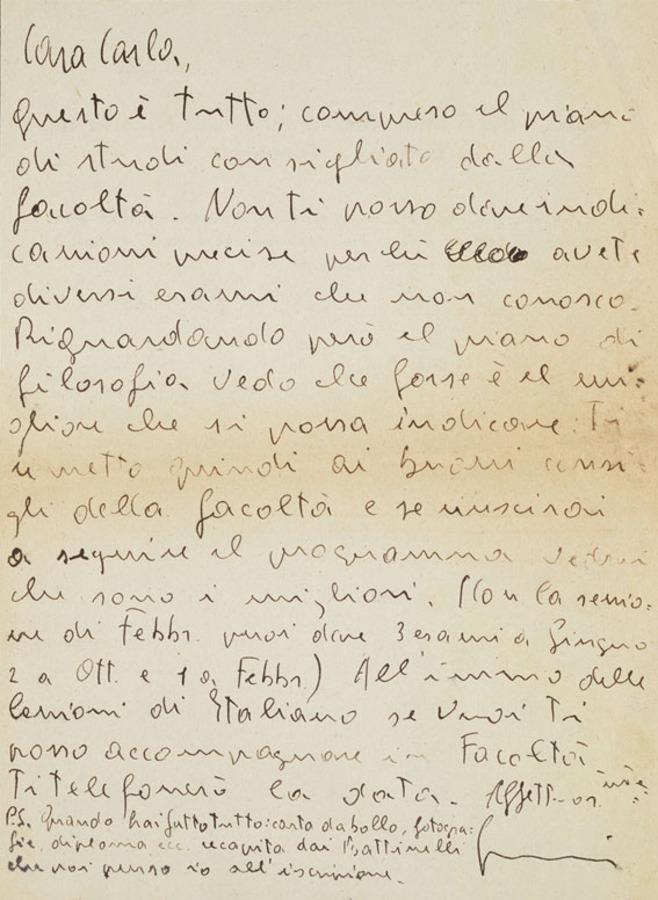 Cara Carla,
questo è tutto; compreso il piano
di studi consigliato dalla
facoltà. Non ti posso dare indi-
cazioni precise perchè avete
diversi esami che non conosco.
Riguardando però il piano di
filosofia vedo che forse è il mi-
gliore che si possa indicare. Ti
rimetto quindi ai buoni consi-
gli della facoltà e se riuscirai
a seguire il programma vedrai
che sono i migliori. (Con la sessio-
ne di Febbr. puoi dare 3 esami a Giugno
2 a Ott. e 1 a Febbr.) All'inizio delle
lezioni di Italiano se vuoi ti
posso accompagnare in Facoltà
Ti telefonerò la data.
P.S. Quando hai fatto tutto: carta da bollo, fotogra-
fie, diploma ecc. recapita dai
che poi penso io all'iscrizione.